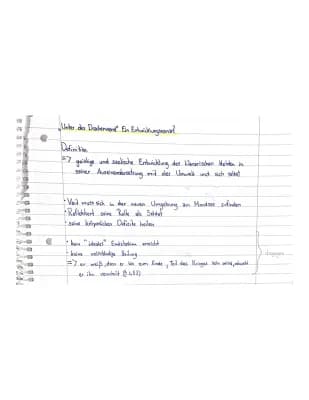 „Unter der Drachenwand" Ein Entwicklungsroman?
Definition
=> geistige und seelische Entwicklung des literarischen Helden in
seiner Auseinandersetzung mit der Umwelt und sich selbst
· Veit muss sich in der neuen Umgebung am Mondsee zufinden
· Reflektiert seine Rolle als Soldat
· seine körperlichen Defizite heilen
· kein "ideales" Erwachsensein erreicht
· keine vollständige Heilung
=> er weiß, dass er bis zum Ende, Teil des Krieges sein wird, obwohl
er ihn verurteilt
dagegen